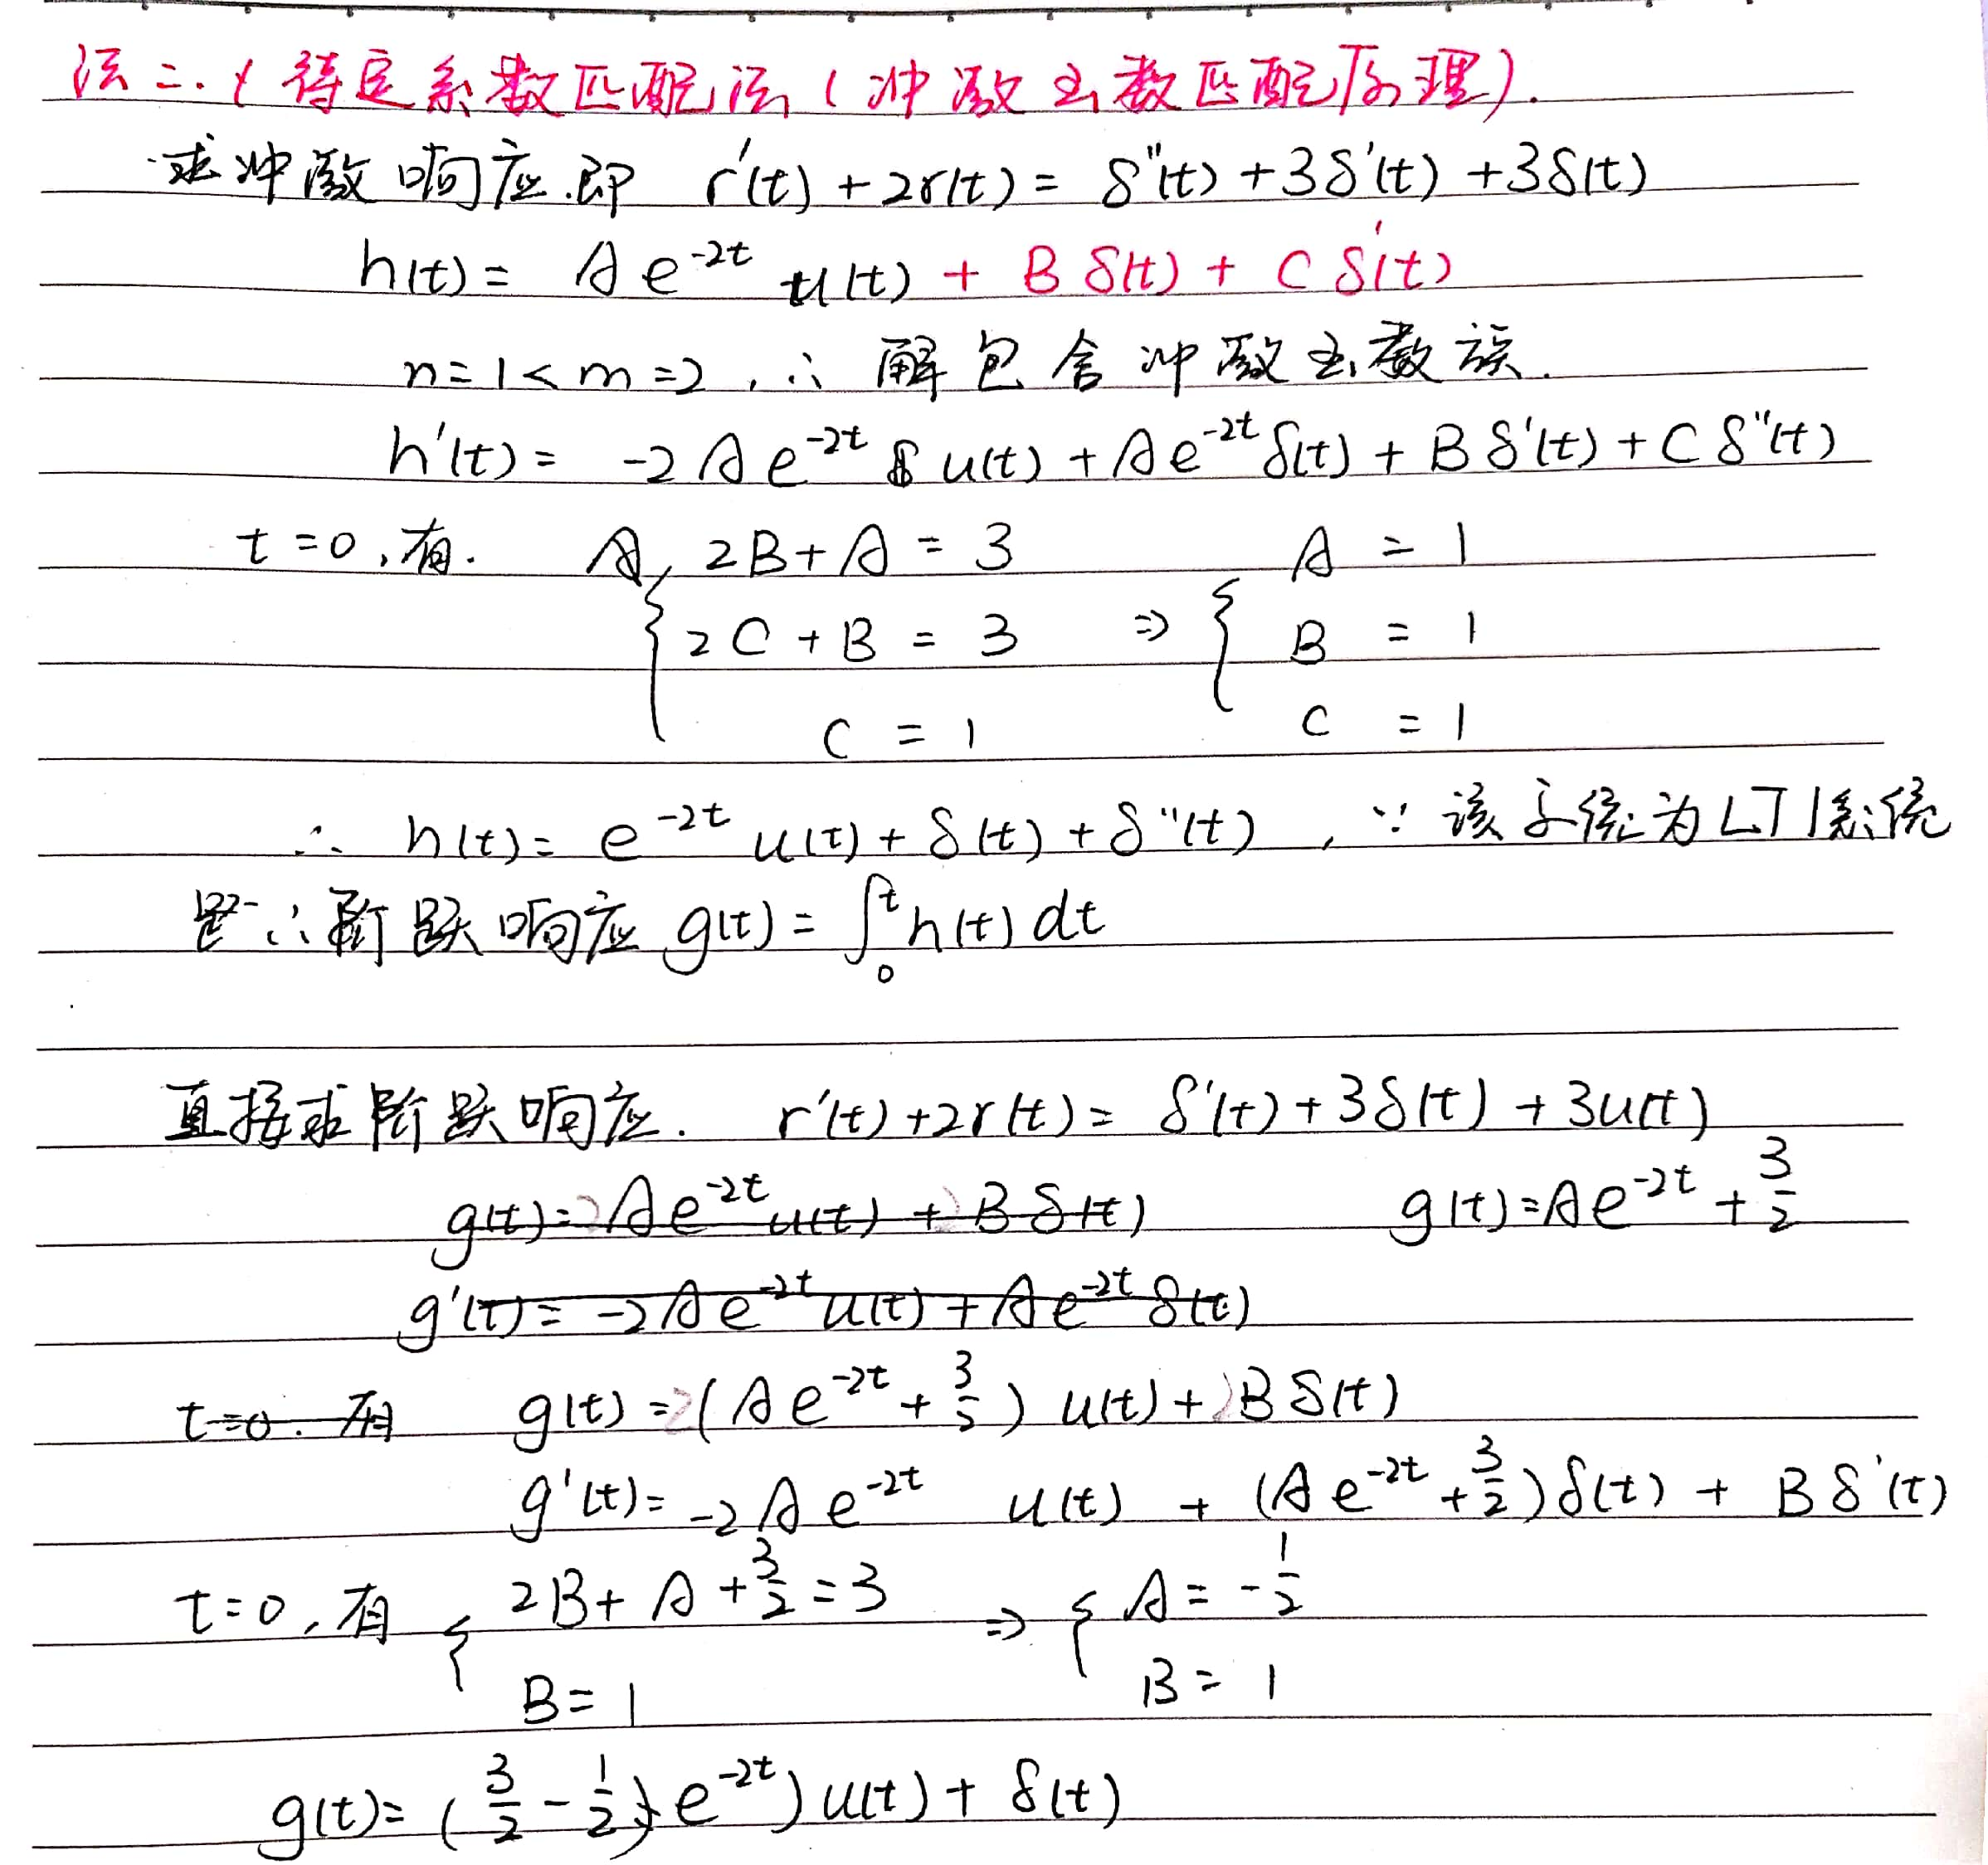 法二.(待定系数匹配法(冲激函数匹配原理).
求冲激响应.即 r'(t) + 2r(t) = δ''(t) + 3δ'(t) + 3δ(t)
h(t) = Ae^{-2t} u(t) + Bδ(t) + Cδ'(t)
n=1<m=2, ∴ 解包含冲激函数族.
h'(t) = -2Ae^{-2t} u(t) + Ae^{-2t}δ(t) + Bδ'(t) + Cδ''(t)
t=0,有. 2B+A = 3 A = 1
2C+B = 3 ⇒ B = 1
C = 1 C = 1
∴ h(t) = e^{-2t} u(t) + δ(t) + δ''(t), ∵ 该系统为LTI系统
∴ 阶跃响应 g(t) = ∫_0^t h(t) dt
直接求阶跃响应. r'(t)+2r(t) = δ'(t)+3δ(t)+3u(t)
g(t)=Ae^{-2t}u(t) + Bδ(t) g(t)=Ae^{-2t} + 3/2
g'(t) = -2Ae^{-2t}u(t) + Ae^{-2t}δ(t)
t=0. 有 g(t) = (Ae^{-2t} + 3/2) u(t) + Bδ(t)
g'(t) = -2Ae^{-2t} u(t) + (Ae^{-2t} + 3/2)δ(t) + Bδ'(t)
t=0,有 2B+A+3/2=3 ⇒ A = -1/2
B=1 B=1
g(t) = (3/2 - 1/2 e^{-2t})u(t) + δ(t)